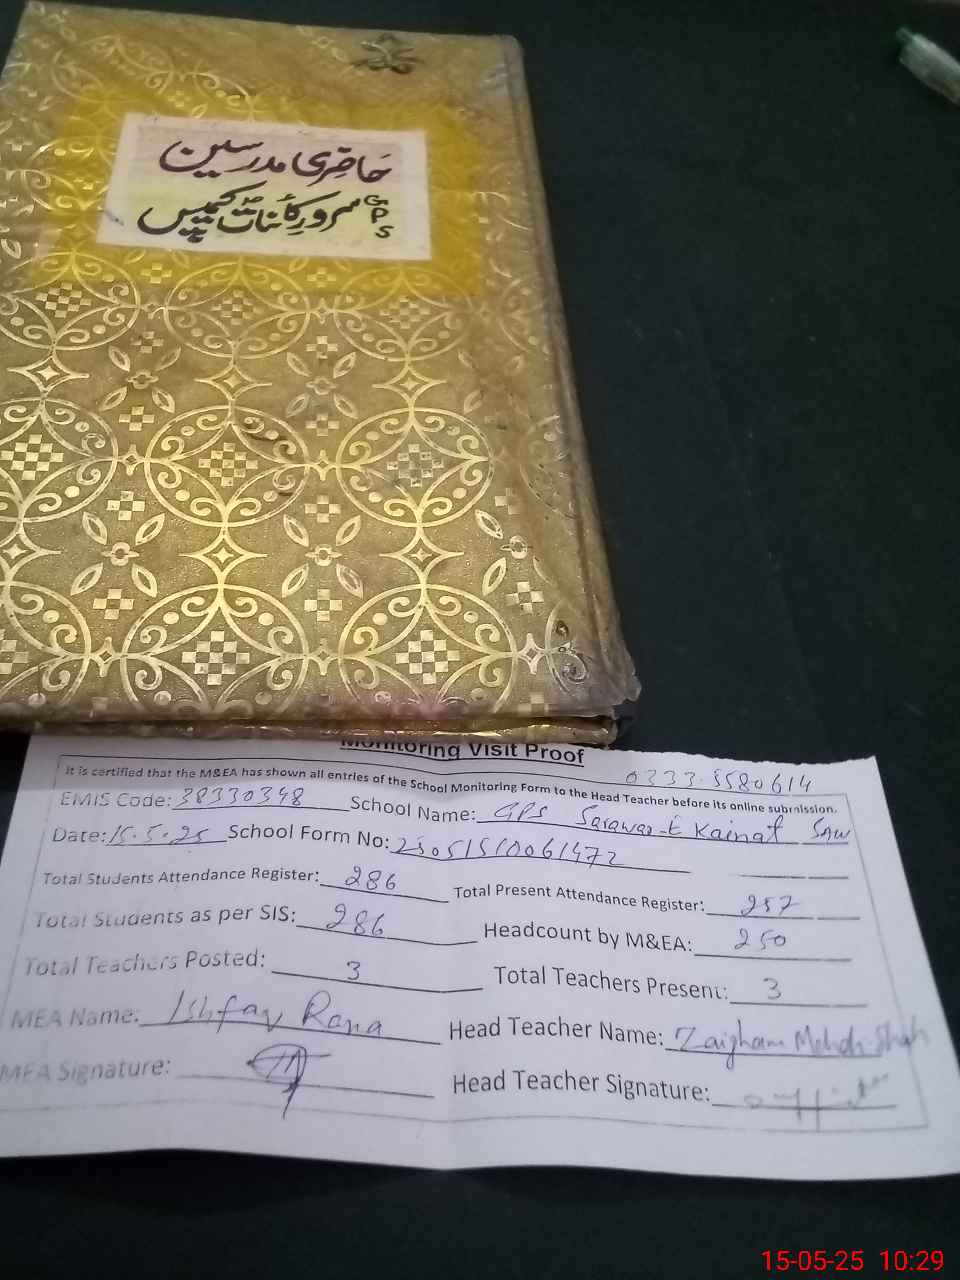 حاضری مدرسین
GPS سرور کائناتؐ کیمپس
Monitoring Visit Proof
0333-5580614
It is certified that the M&EA has shown all entries of the School Monitoring Form to the Head Teacher before its online submission.
EMIS Code: 38330348 School Name: GPS Sarawar-E Kainat SAW
Date: 15.5.25 School Form No: 25051510061472
Total Students Attendance Register: 286 Total Present Attendance Register: 257
Total Students as per SIS: 286 Headcount by M&EA: 250
Total Teachers Posted: 3 Total Teachers Present: 3
MEA Name: Ishfaq Rana Head Teacher Name: Zaigham Mehdi Shah
MEA Signature: Head Teacher Signature:
15-05-25 10:29